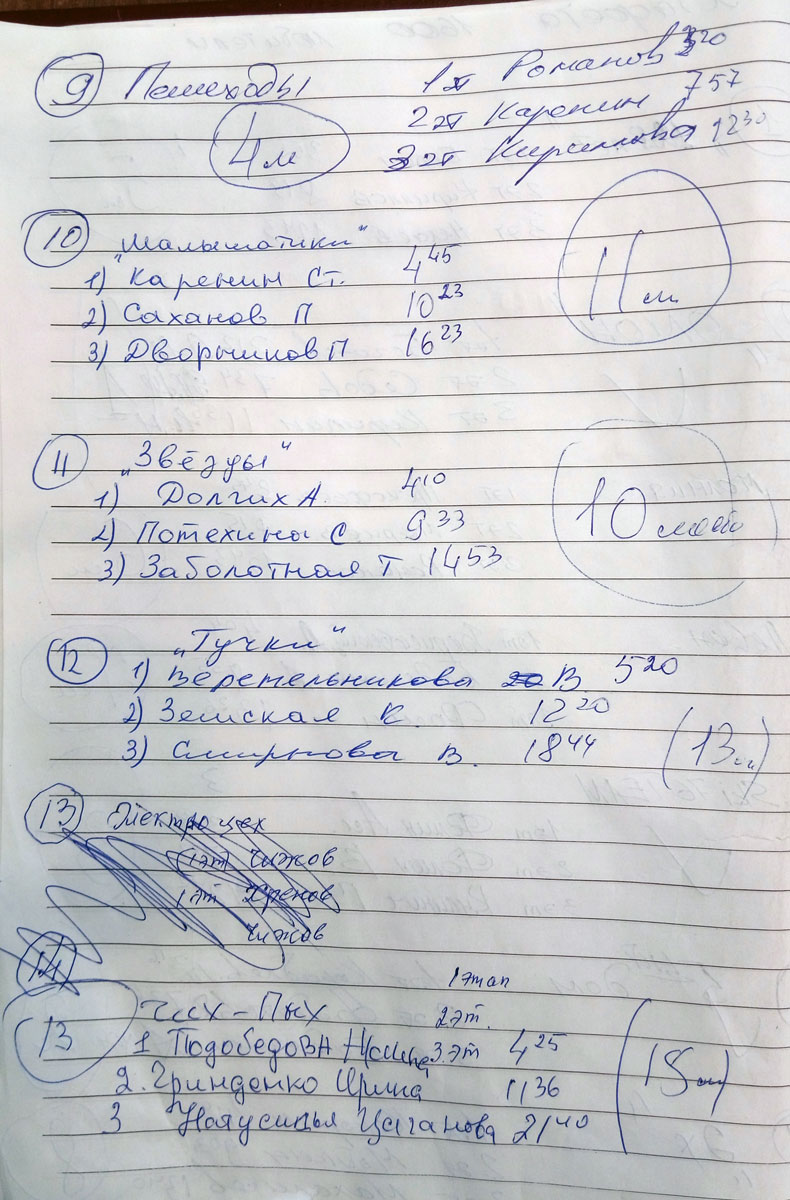 9 Пешеходы 1эт Романов 3 20
2эт Каренин 7 57
4м 3эт Кириллова 12 30
10 "Малышатики"
1) Каренин Ст. 4 45
11 м
2) Саханов П 10 23
3) Дворчиков П 16 23
11 "Звёзды"
1) Долгих А. 4 10
2) Потехина С 9 33
10 место
3) Заболотная Т 14 53
12 "Тучки"
1) Веретельникова В 5 20
2) Земская К. 12 20
3) Смирнова В. 18 44
13 м
13 Электроцех
1эт Чижов
1эт Хренов
Чижов
14
1 этап
13 Чих-Пых 2эт.
1 Подобедова 3.эт 4 25
2. Гринденко Ирина 11 36
15 м
3 Цаганова 21 40